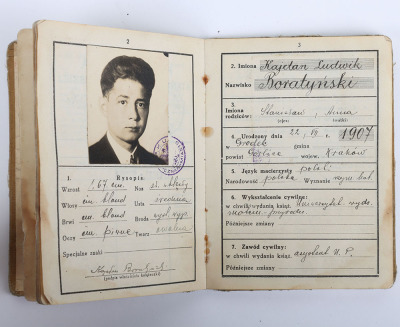 2
1.
Rysopis.
Wzrost 1,67 cm. Nos
Włosy cm. bland Usta średnie
Brwi cm. bland Broda
Oczy cm. piwne Twarz owalna
Specjalne znaki
(podpis właściciela książeczki)
3
2. Imiona Kajetan Ludwik
Nazwisko Boratyński
3.
Imiona rodziców: Stanisław, Anna
(ojca) (matki)
4. Urodzony dnia 22 1907
Gródek gmina
powiat Gorlice wojew. Kraków
5. Język macierzysty polski
Narodowość polska Wyznanie rzym. kat.
6. Wykształcenie cywilne:
w chwili wydania książ. Uniwersytet wydz.
Późniejsze zmiany
7. Zawód cywilny:
w chwili wydania książ. asystent U. P.
Późniejsze zmiany